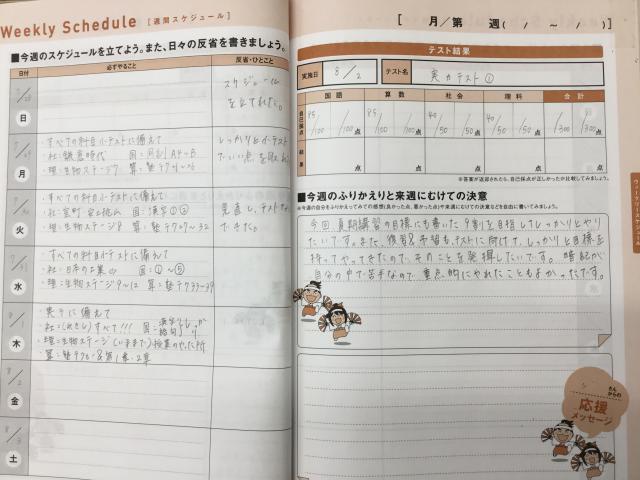 Weekly Schedule [週間スケジュール]
■今週のスケジュールを立てよう。また、日々の反省を書きましょう。
日付 必ずやること 反省・ひとこと
7/28
日
スケジュール
を立てれた。
月
・すべての科目小テストに備えて
・社:鎌倉時代
・理:生物ステージ7
しっかり小テスト
でいい点を取れ
火
・すべての科目小テストに備えて
・社:室町 安土桃山 国:漢字①②
・理:生物ステージ8 算:塾テク
見直し、テスト
できた。
7/31
水
・すべての科目小テストに備えて
・社:日本の工業 国:①~⑤
・理:生物ステージ9~12 算:塾テク33~39
8/1
木
・実テに備えて
・社:すべて!!! 国:漢字
・理:生物ステージ(いままで)授業のやった所
・算:塾テク
8/2
金
8/3
土
[ 月/第 週( / ~ / )]
テスト結果
実施日 8/2 テスト名 実力テスト①
国語 算数 社会 理科 合計
自己採点 85/100点 85/100点 40/50点 40/50点 /300点 /300点
結果 点 点 点 点 点
※答案が返却されたら、自己採点が正しかったか比較してみましょう。
■今週のふりかえりと来週にむけての決意
今回、夏期講習の目標にも書いた9割を目指してしっかりとやり
たいです。また、復習&予習も、テストに向けて、しっかりと目標を
持ってやってきたので、そのことを発揮したいです。暗記が
自分の中で苦手なので、重点的にやれたこともよかったです。
ウィークリースケジュール
さん
からの
応援
メッセージ